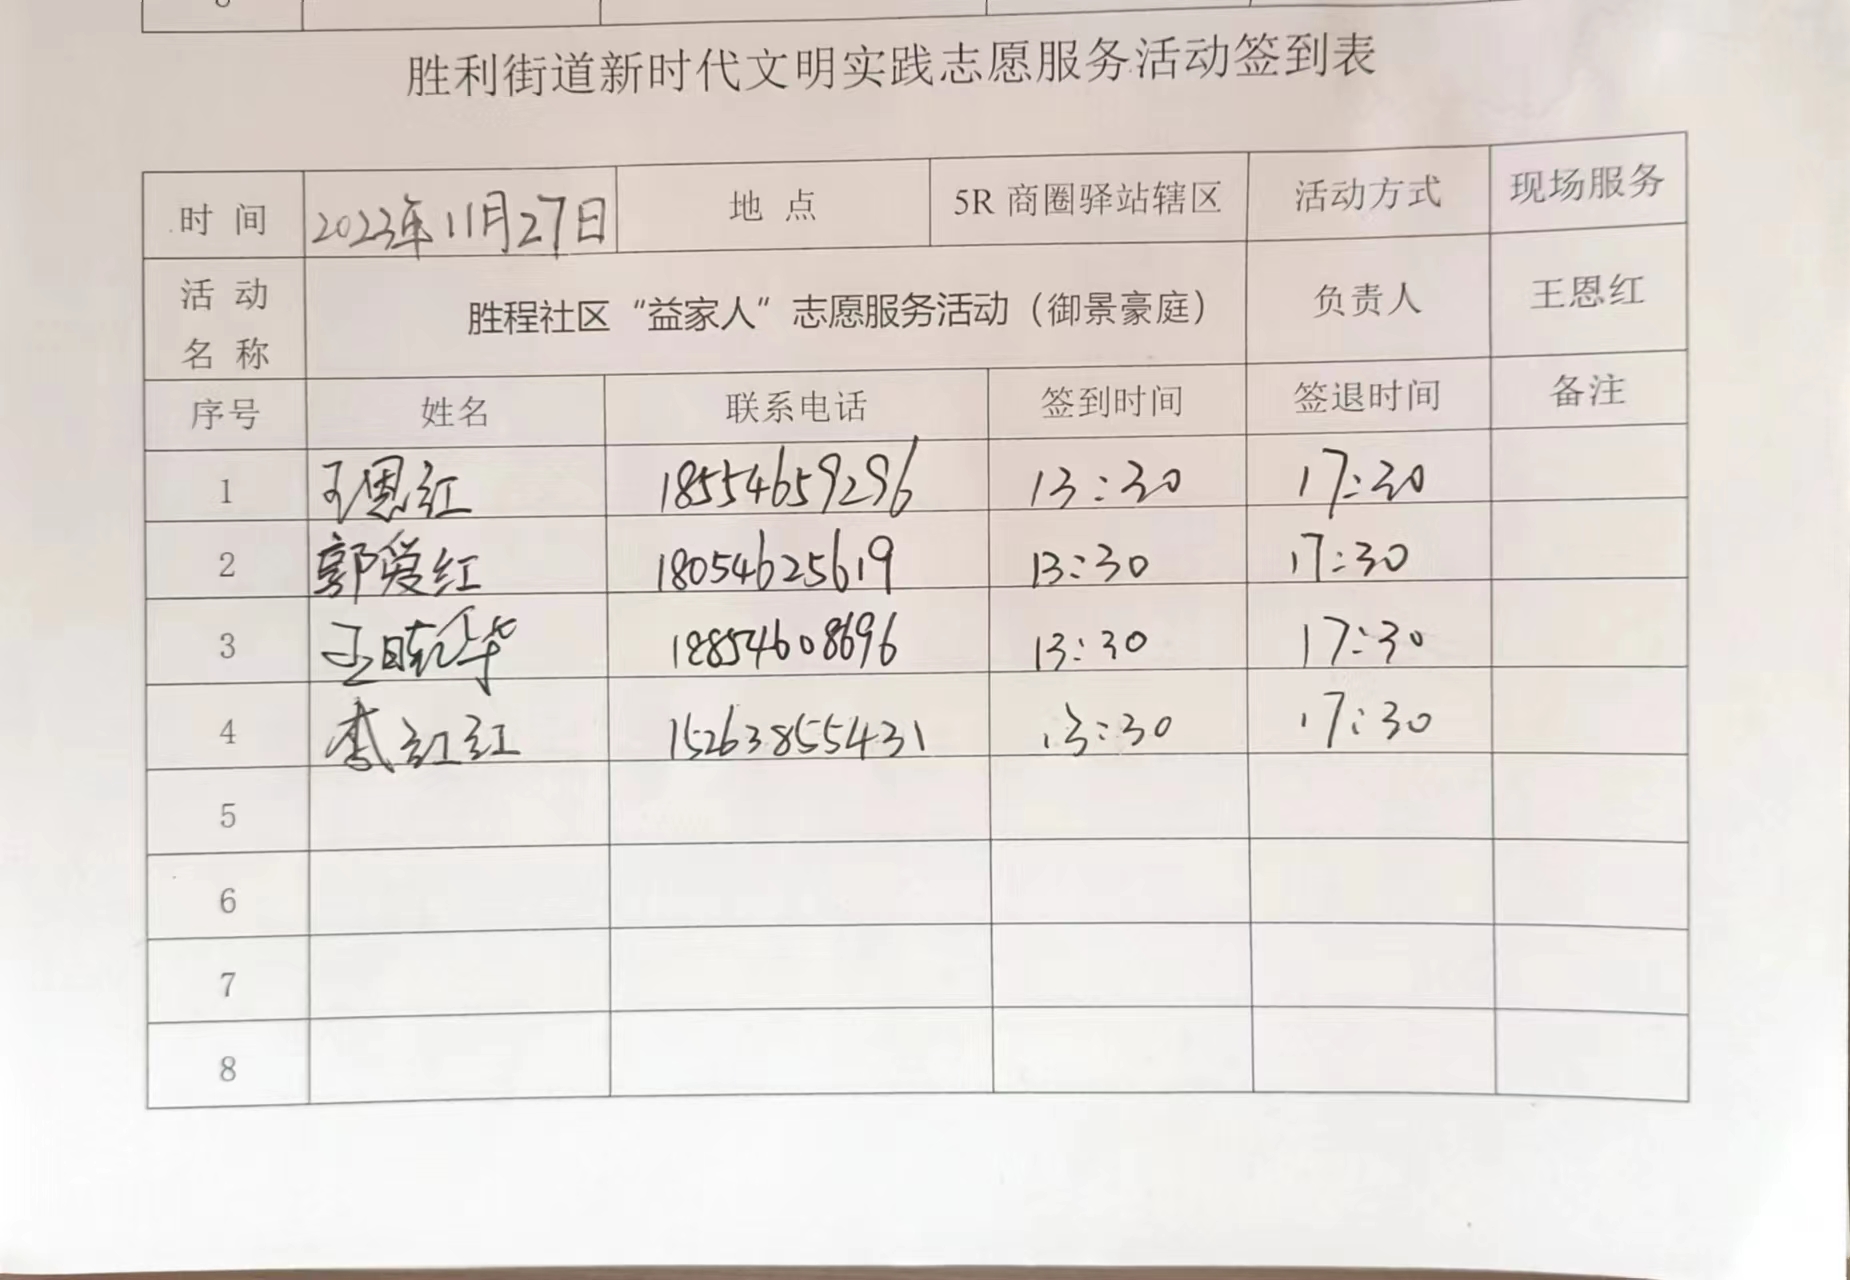 胜利街道新时代文明实践志愿服务活动签到表
时 间 2023年11月27日 地 点 5R 商圈驿站辖区 活动方式 现场服务
活 动
名 称 胜程社区“益家人”志愿服务活动（御景豪庭） 负责人 王恩红
序号 姓名 联系电话 签到时间 签退时间 备注
1 王恩红 18554659296 13:30 17:30
2 郭爱红 18054625619 13:30 17:30
3 王晓华 18854608696 13:30 17:30
4 李红红 15263855431 13:30 17:30
5
6
7
8